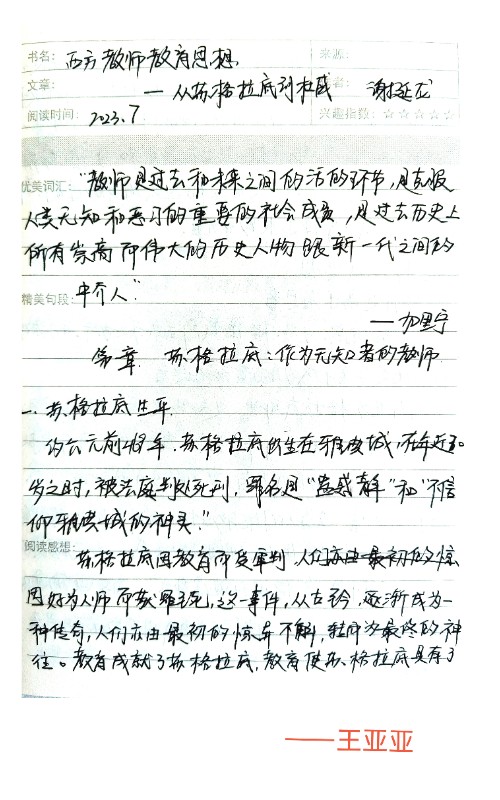 书名: 西方教师教育思想 来源:
文章: —从苏格拉底到杜威 谢延龙
阅读时间: 2023.7 兴趣指数: ☆☆☆☆☆
优美词汇: "教师是过去和未来之间的活的环节,是克服
人类无知和恶习的重要的社会成员,是过去历史上
所有崇高而伟大的历史人物跟新一代之间的
精美句段: 中介人"
—加里宁
第一章 苏格拉底:作为无知者的教师
一、苏格拉底生平
约公元前469年,苏格拉底出生在雅典城,在年近70
岁之时,被法庭判处死刑,罪名是"蛊惑青年"和"不信
仰雅典城的神灵."
阅读感想: 苏格拉底因教育而受审判,人们亦由最初的惊
因好为人师而获罪致死,这一事件,从古至今,逐渐成为一
种传奇,人们亦由最初的惊奇不解,转而为最终的神
往。教育成就了苏格拉底,教育使苏格拉底具有了
——王亚亚